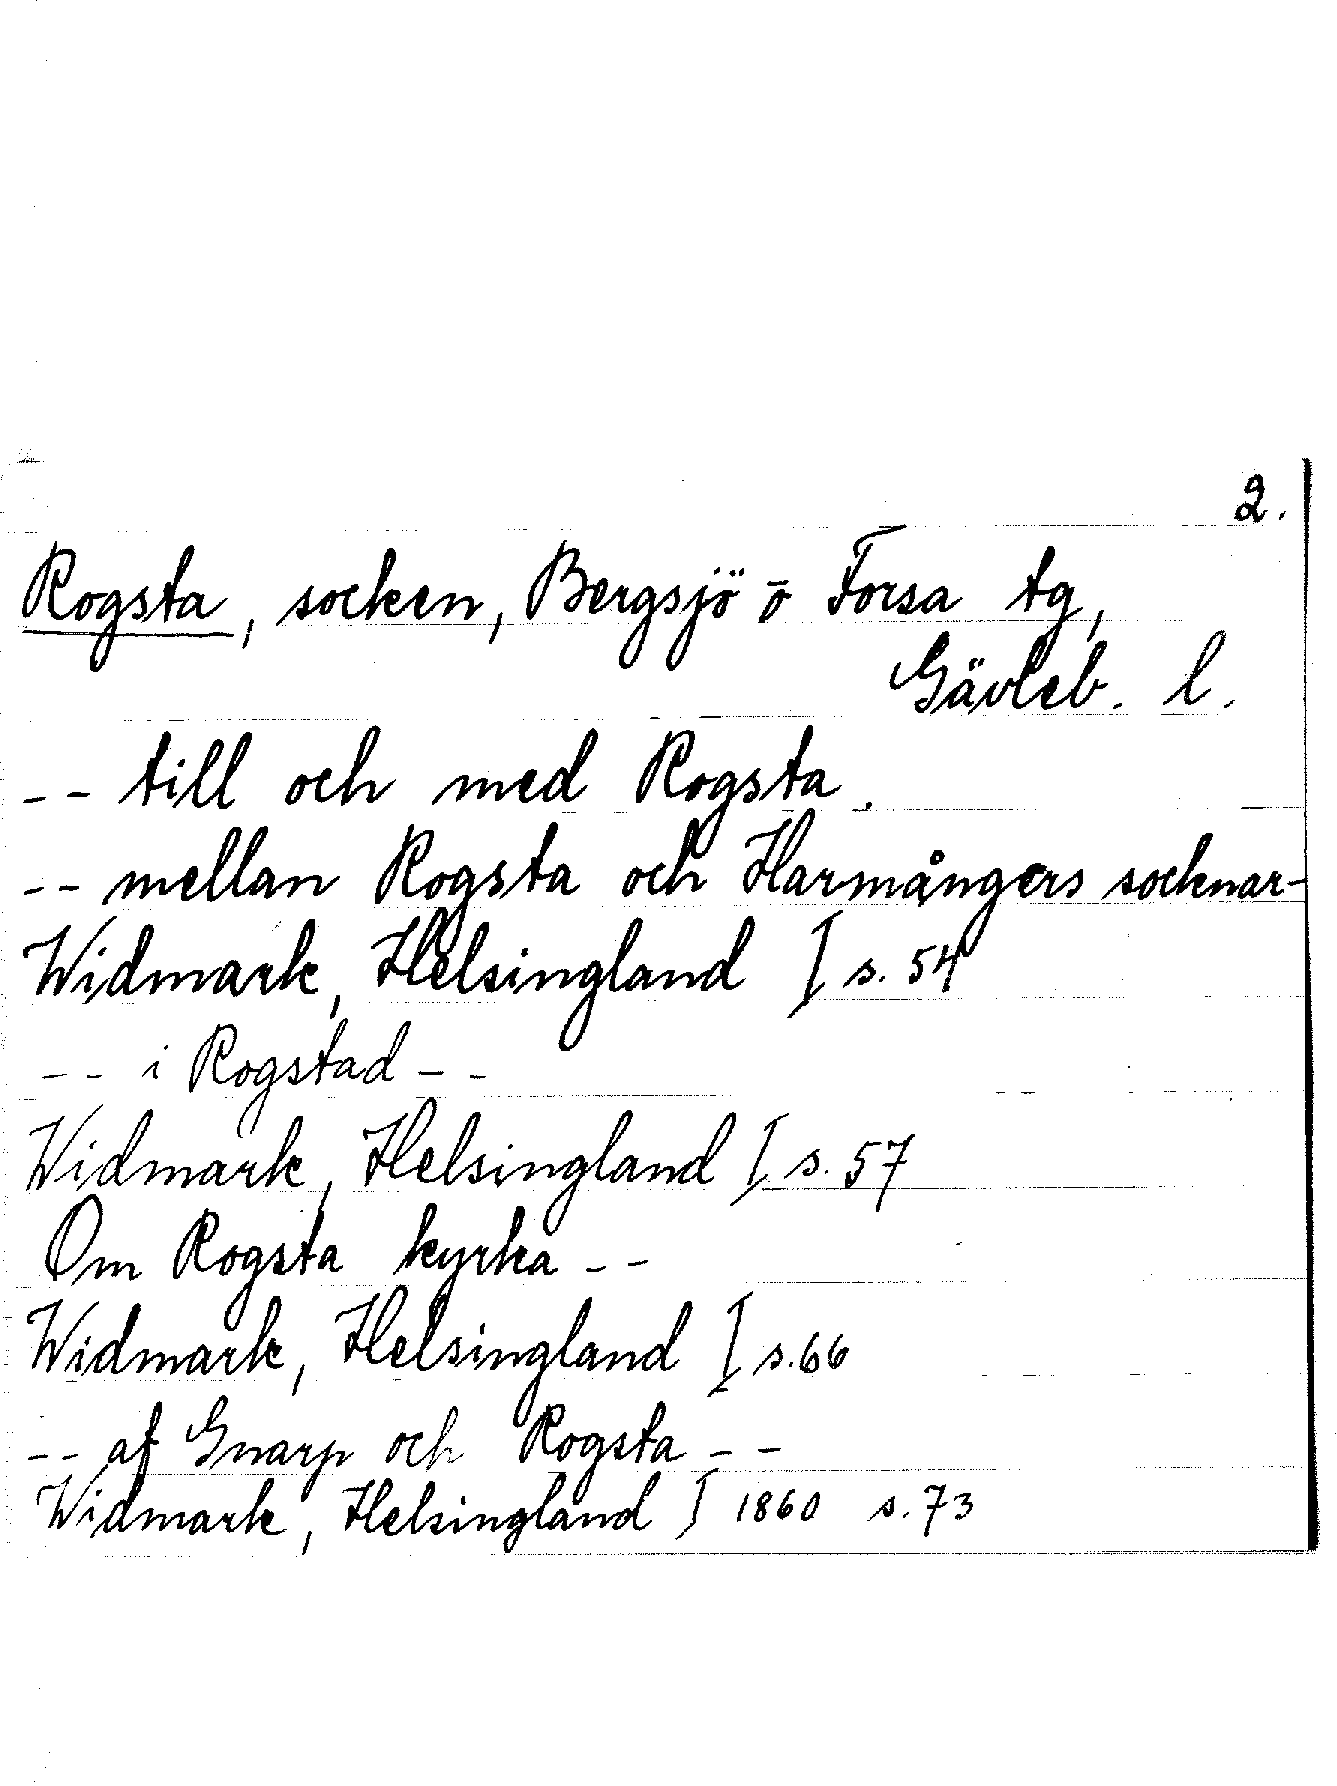 2.
Rogsta, socken, Bergsjö o Forsa tg,
Gävleb. l.
-- till och med Rogsta.
-- mellan Rogsta och Harmångers socknar-
Widmark, Helsingland I s. 54
-- i Rogstad --
Widmark, Helsingland I s. 57
Om Rogsta kyrka --
Widmark, Helsingland I s. 66
-- af Gnarp och Rogsta --
Widmark, Helsingland I 1860 s. 73